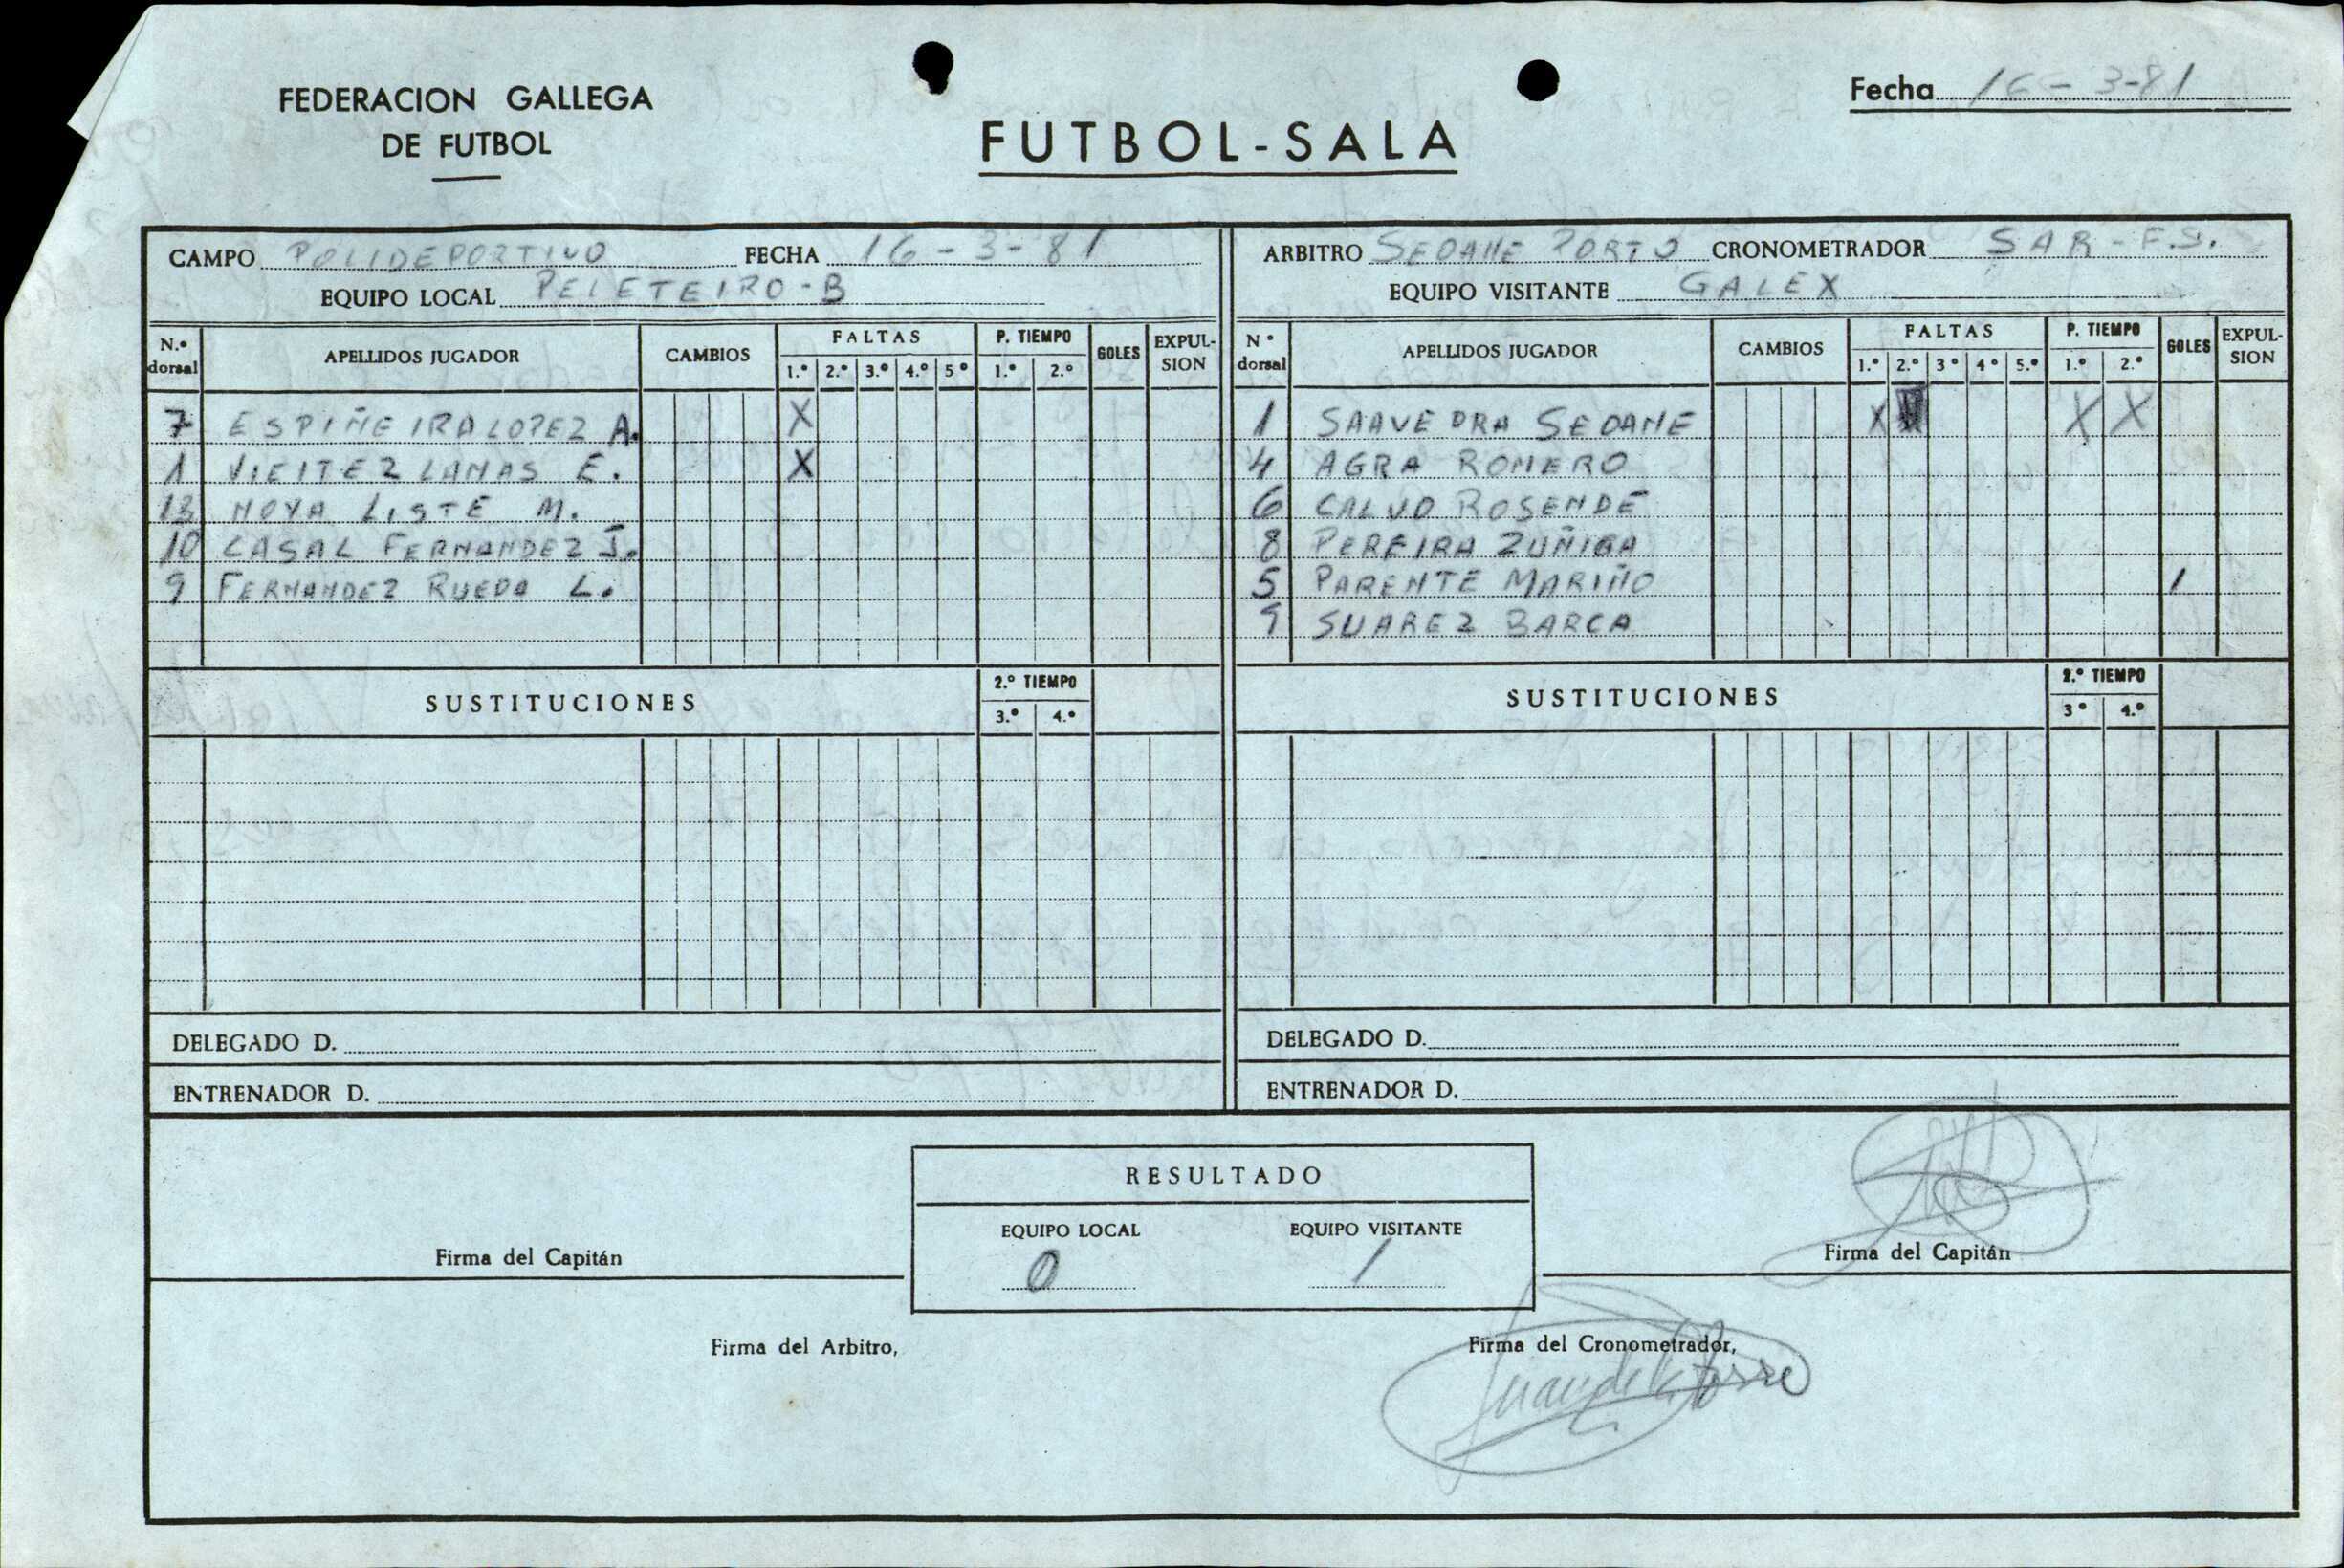 FEDERACION GALLEGA
DE FUTBOL
FUTBOL-SALA
Fecha 16-3-81
CAMPO POLIDEPORTIVO FECHA 16-3-81
EQUIPO LOCAL PELETEIRO-B
N.º dorsal APELLIDOS JUGADOR CAMBIOS FALTAS 1.º 2.º 3.º 4.º 5º P. TIEMPO 1.º 2.º GOLES EXPULSION
7 ESPIÑEIRA LOPEZ A. X
1 VIEITEZ LAMAS E. X
13 NOYA LISTE M.
10 CASAL FERNANDEZ J.
9 FERNANDEZ RUEDA L.
SUSTITUCIONES 2.º TIEMPO 3.º 4.º
DELEGADO D.
ENTRENADOR D.
ARBITRO SEOANE PORTO CRONOMETRADOR SAR-F.S.
EQUIPO VISITANTE GALEX
Nº dorsal APELLIDOS JUGADOR CAMBIOS FALTAS 1.º 2.º 3º 4º 5.º P. TIEMPO 1.º 2.º GOLES EXPULSION
1 SAAVEDRA SEOANE X X X
4 AGRA ROMERO
6 CALVO ROSENDE
8 PEREIRA ZUÑIGA
5 PARENTE MARIÑO 1
9 SUAREZ BARCA
SUSTITUCIONES 2.º TIEMPO 3º 4.º
DELEGADO D.
ENTRENADOR D.
RESULTADO
EQUIPO LOCAL EQUIPO VISITANTE
0 1
Firma del Capitán
Firma del Capitán
Firma del Arbitro,
Firma del Cronometrador,